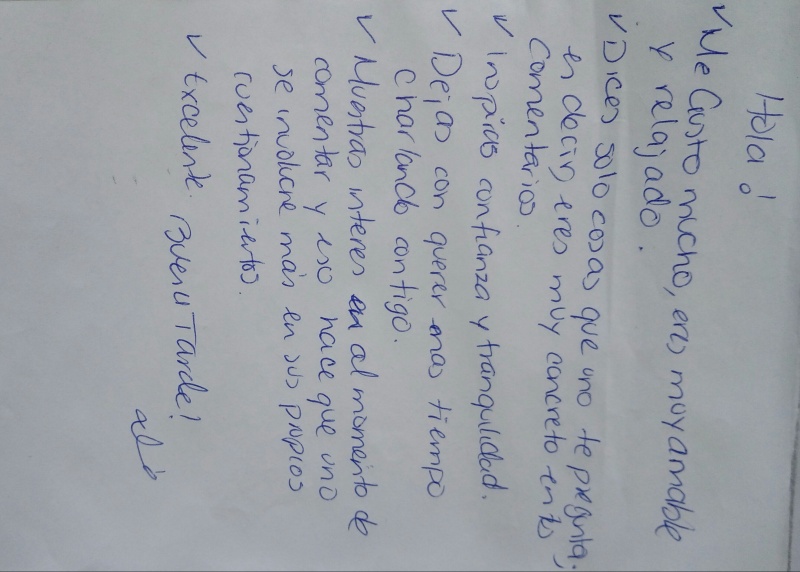 Hola!
✓ Me Gusto mucho, eres muy amable
y relajado.
✓ Dices solo cosas que uno te pregunta,
es decir, eres muy concreto en tus
comentarios.
✓ inspiras confianza y tranquilidad.
✓ Dejas con querer mas tiempo
charlando contigo.
✓ Muestras interes en al momento de
comentar y eso hace que uno
se involucre más en sus propios
cuestionamientos.
✓ Excelente. Buena Tarde!